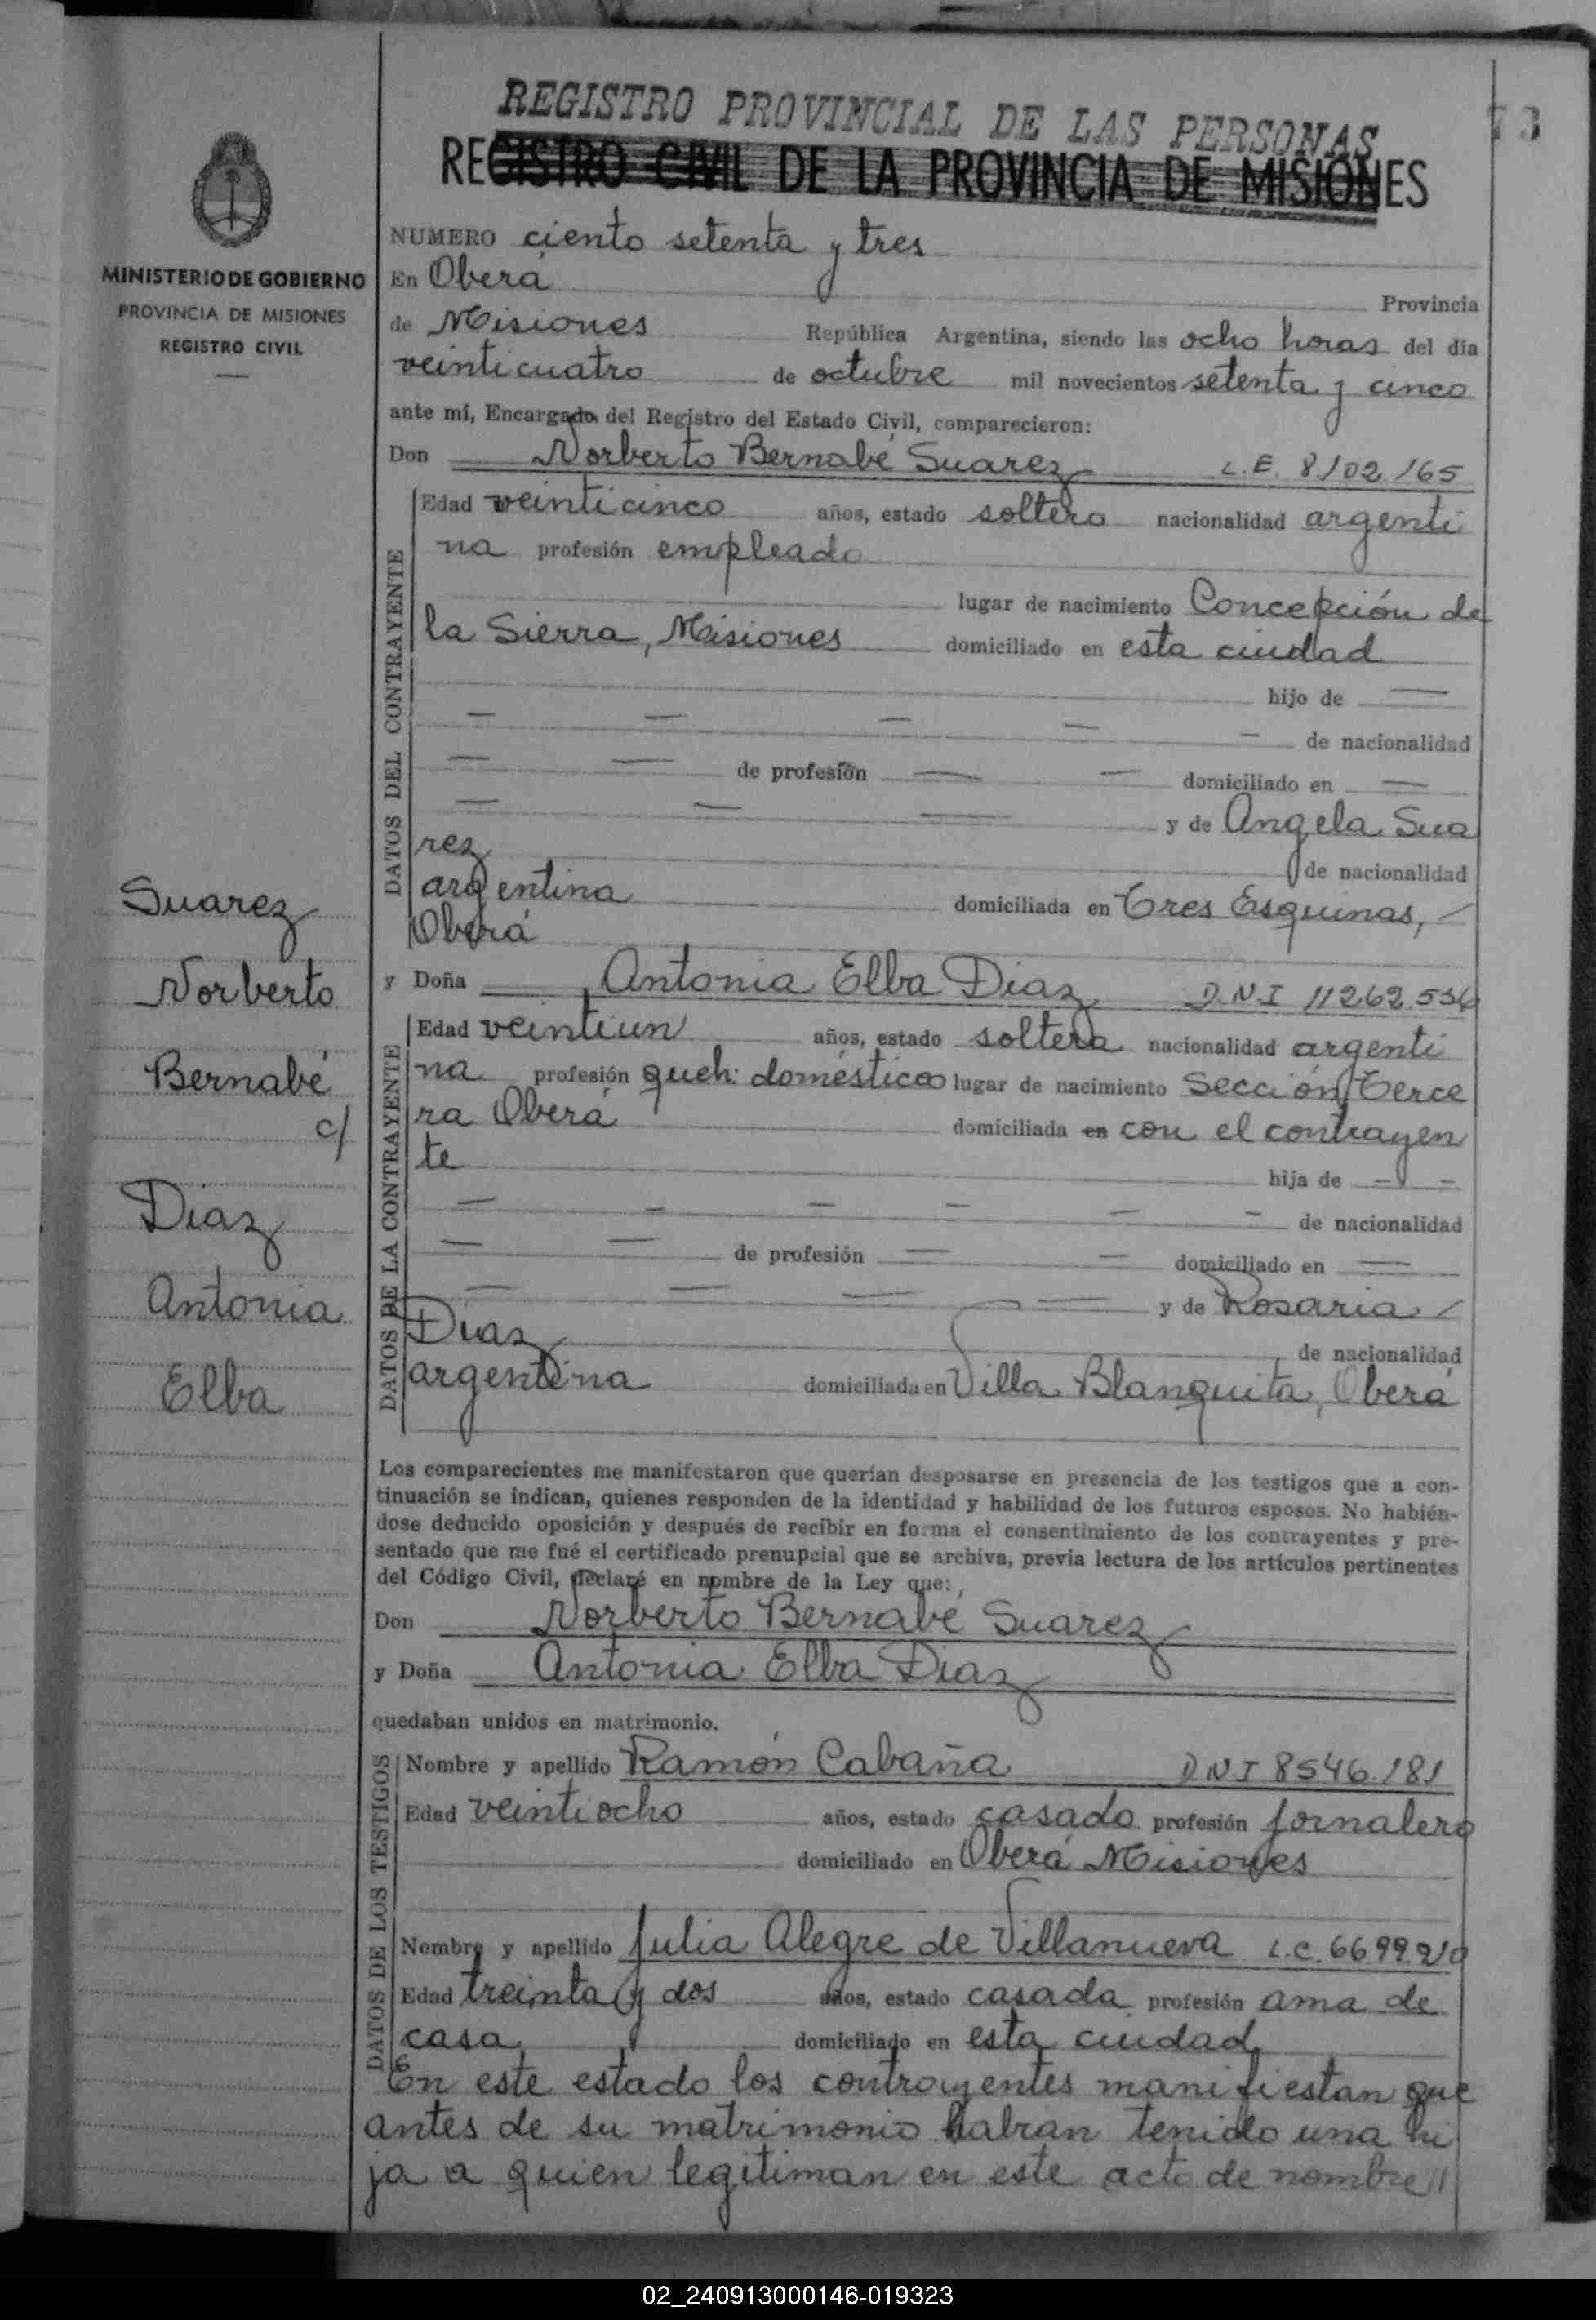 REGISTRO PROVINCIAL DE LAS PERSONAS
73
REGISTRO CIVIL DE LA PROVINCIA DE MISIONES
MINISTERIO DE GOBIERNO
PROVINCIA DE MISIONES
REGISTRO CIVIL
NUMERO ciento setenta y tres
En Oberá Provincia
de Misiones República Argentina, siendo las ocho horas del día
veinticuatro de octubre mil novecientos setenta y cinco
ante mí, Encargado del Registro del Estado Civil, comparecieron:
Don Norberto Bernabé Suarez L.E. 8102165
DATOS DEL CONTRAYENTE
Edad veinticinco años, estado soltero nacionalidad argenti
na profesión empleado
lugar de nacimiento Concepción de
la Sierra, Misiones domiciliado en esta ciudad
hijo de —
— — — — — de nacionalidad
— — de profesión — — domiciliado en —
— — — y de Angela Sua
rez de nacionalidad
argentina domiciliada en Tres Esquinas,
Oberá
y Doña Antonia Elba Diaz D.N.I 11262.536
DATOS DE LA CONTRAYENTE
Edad veintiun años, estado soltera nacionalidad argenti
na profesión queh: domésticos lugar de nacimiento Sección Terce
ra Oberá domiciliada en con el contrayen
te hija de — —
— — — — — — de nacionalidad
— — de profesión — — domiciliado en —
— — — — y de Rosaria
Diaz de nacionalidad
argentina domiciliada en Villa Blanquita, Oberá
Los comparecientes me manifestaron que querían desposarse en presencia de los testigos que a con-
tinuación se indican, quienes responden de la identidad y habilidad de los futuros esposos. No habién-
dose deducido oposición y después de recibir en forma el consentimiento de los contrayentes y pre-
sentado que me fué el certificado prenupcial que se archiva, previa lectura de los artículos pertinentes
del Código Civil, declaré en nombre de la Ley que:
Don Norberto Bernabé Suarez
y Doña Antonia Elba Diaz
quedaban unidos en matrimonio.
DATOS DE LOS TESTIGOS
Nombre y apellido Ramón Cabaña D.N.I 8546.181
Edad veintiocho años, estado casado profesión jornalero
domiciliado en Oberá Misiones
Nombre y apellido Julia Alegre de Villanueva L.C. 6699.210
Edad treinta y dos años, estado casada profesión ama de
casa domiciliado en esta ciudad
En este estado los contrayentes manifiestan que
antes de su matrimonio habian tenido una hi
ja a quien legitiman en este acto de nombre//
Suarez
Norberto
Bernabé
c/
Diaz
Antonia
Elba
02_240913000146-019323